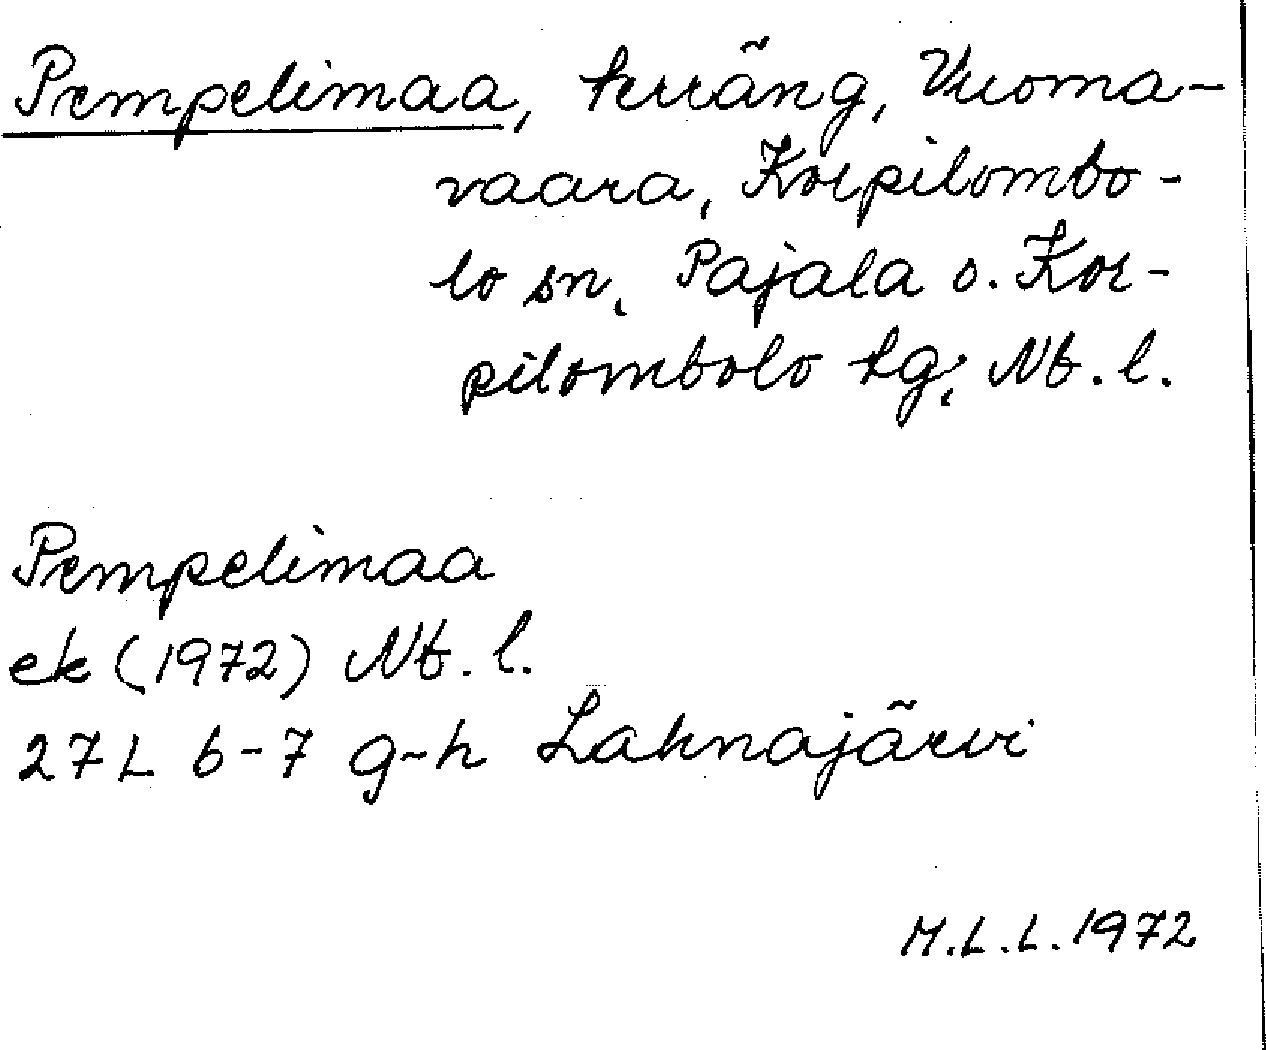 Pempelimaa, terräng, Vuoma-
vaara, Korpilombo-
lo sn, Pajala o. Kor-
pilombolo tg, Nb. l.
Pempelimaa
ek (1972) Nb. l.
27 L 6-7 g-h Lahnajärvi
M.L.L. 1972